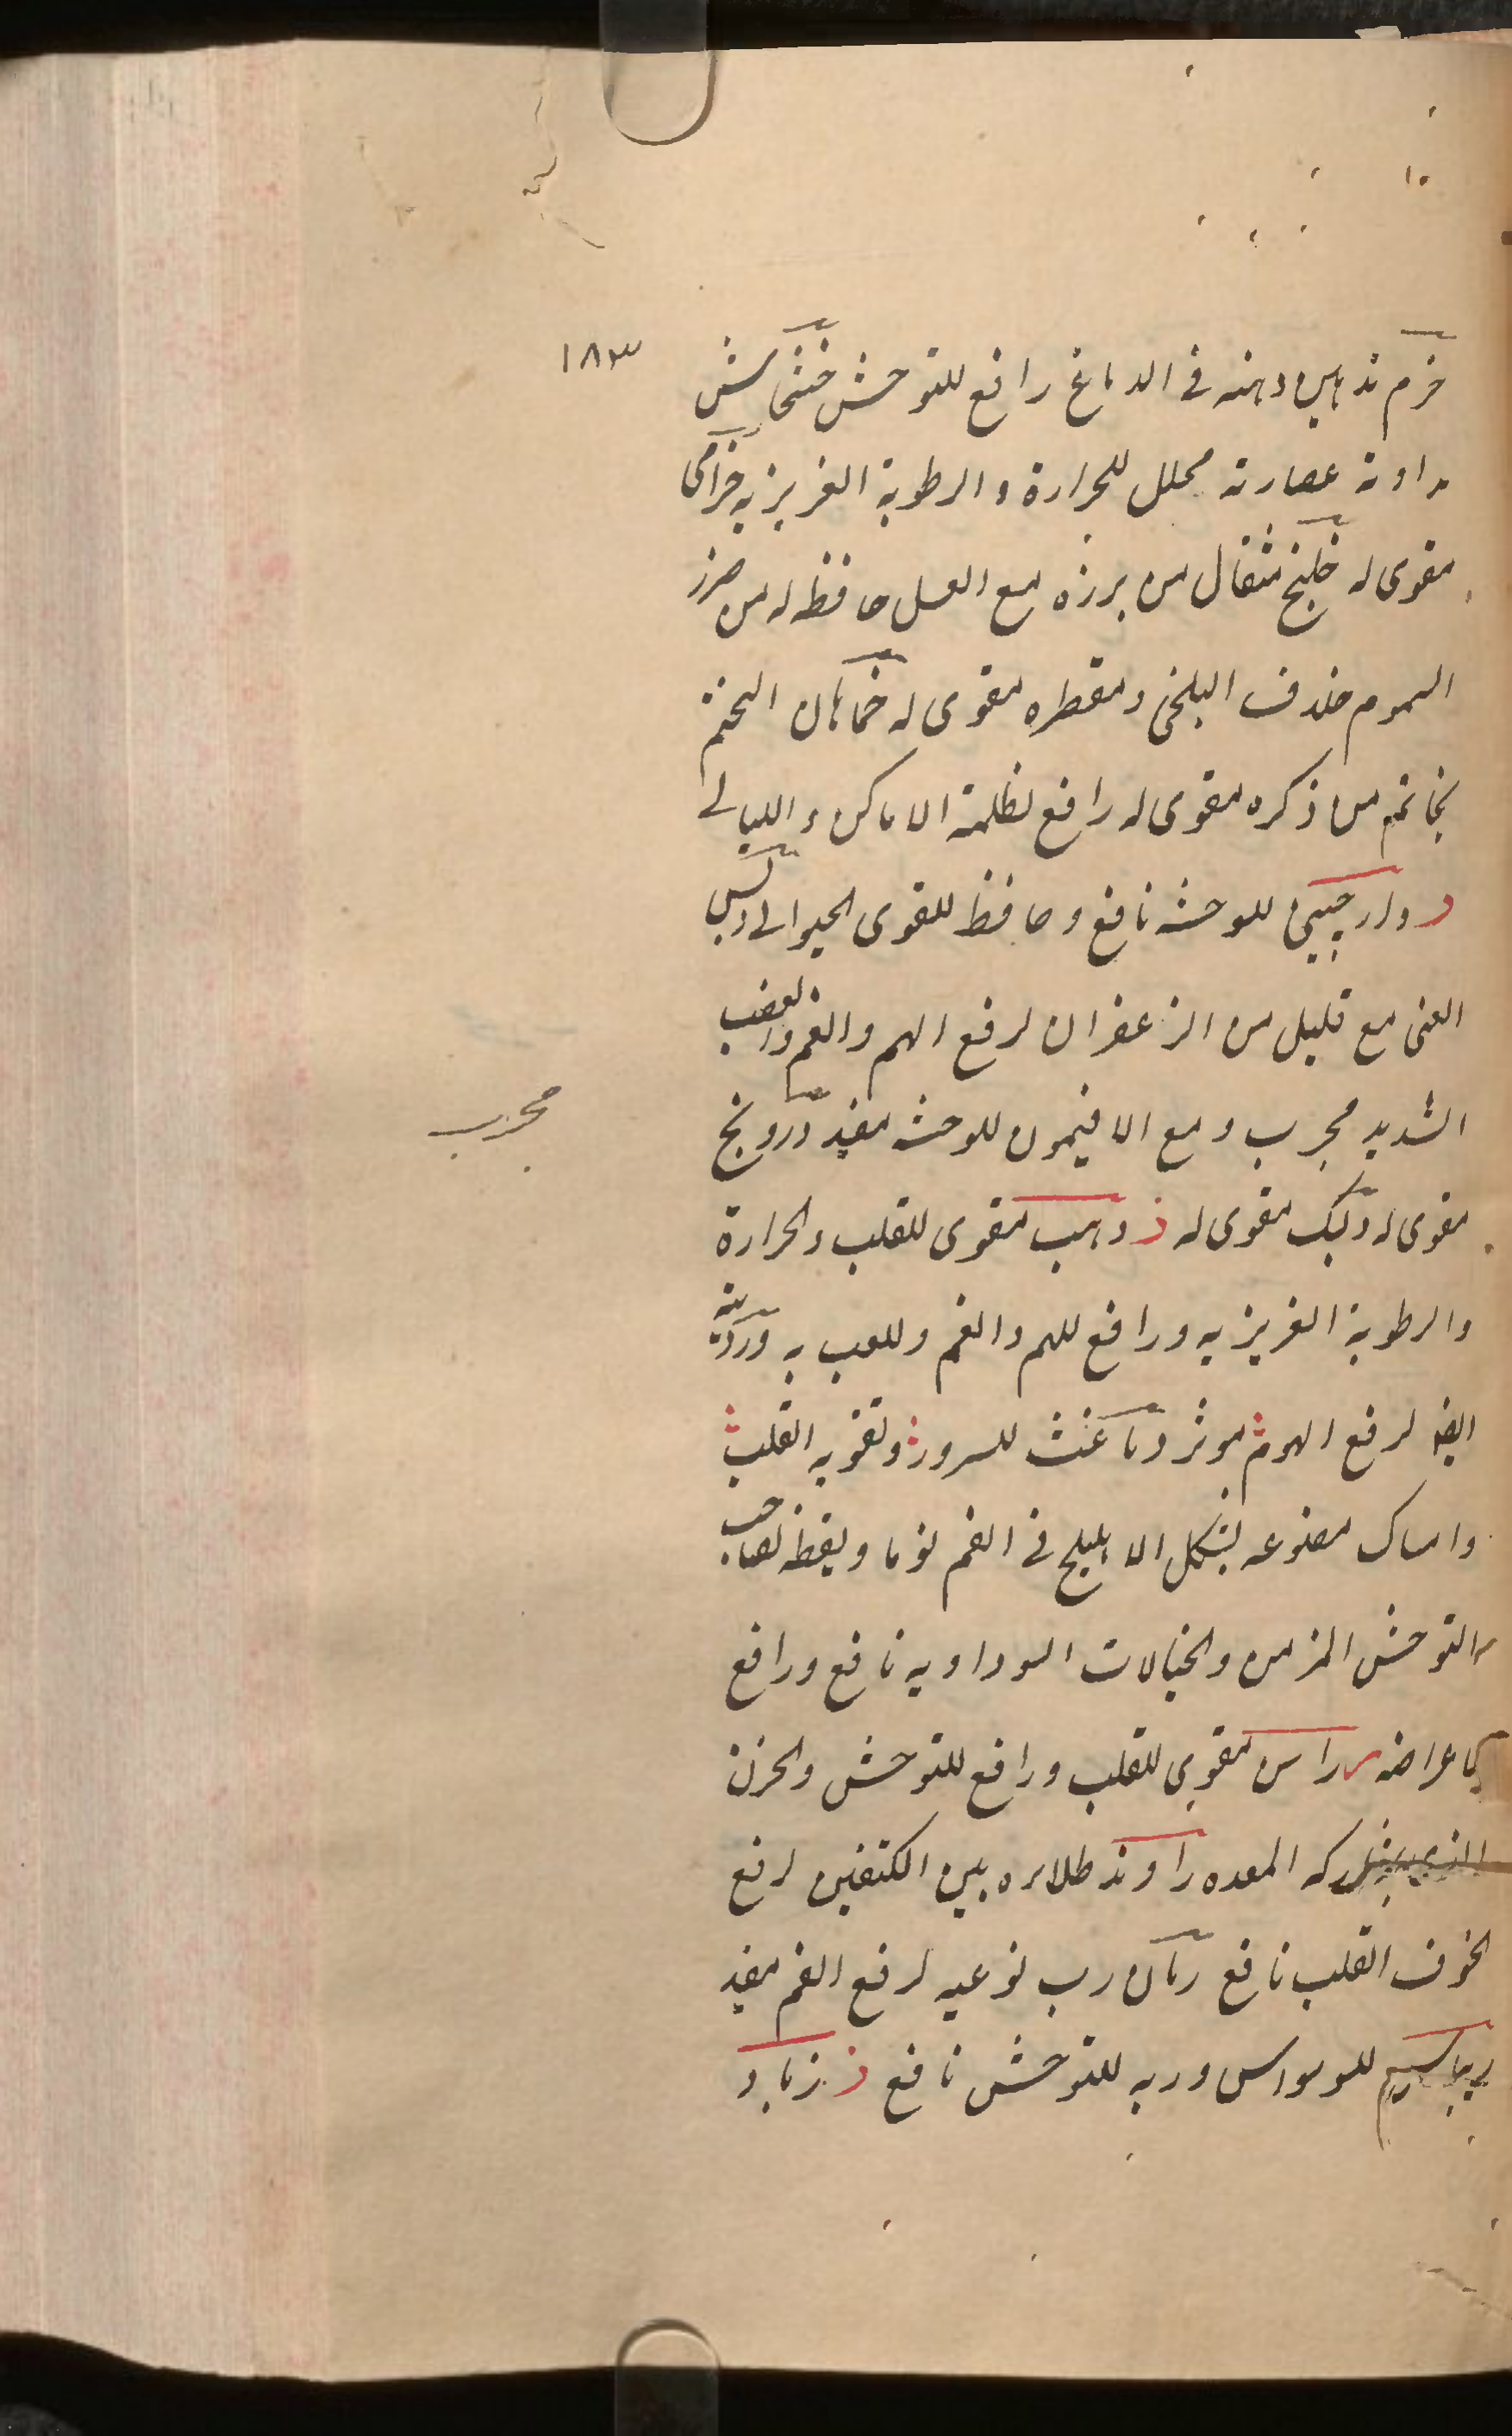 ١٨٣
خرم تدهين دهنه في الدماغ رافع للتوحش خشخاش
مداومة عصارته محلل للحرارة والرطوبة الغريزيه خزامى
مقوى له خلنج مثقال من برزه مع العسل حافظ له من ضرر
السموم خلاف البلخى ومقطره مقوى له خماهان التختم
بخاتم من ذكره مقوى له رافع لظلمة الاماكن والليالى
د دارچينى للوحشه نافع وحافظ للقوى الحيوانى دبس
العنى مع قليل من الزعفران لرفع الهم والغم والغضب
الشديد مجرب ومع الافتيمون للوحشه مفيد درونج
مجرب
مقوى له ديك مقوى له ذ ذهب مقوى للقلب والحرارة
والرطوبة الغريزيه ورافع للهم والغم وللعب به ورؤيته
ايضا لرفع الهم موثر وباعث للسرور وتقويه القلب
وامساك مصنوعه بشكل الاهليلج في الفم نوما ويقظه لصاحب
التوحش المزمن والخيالات السوداويه نافع ورافع
لاعراضه ر راسن مقوى للقلب ورافع للتوحش والحزن
المعده راوند طلائه بين الكتفين لرفع
الخوف القلب نافع رمان رب نوعيه لرفع الغم مفيد
ريباس للوسواس وربه للتوحش نافع ز زباد